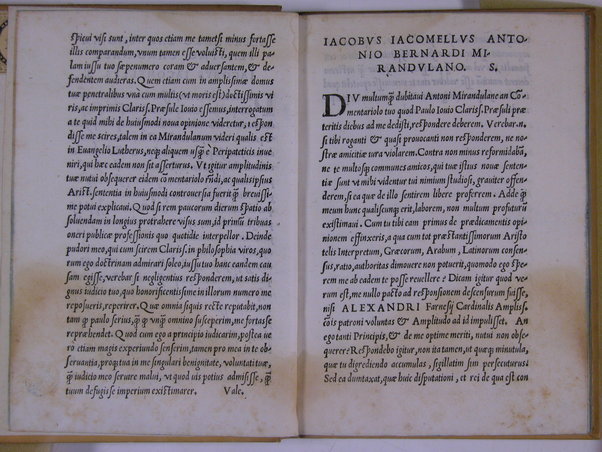 spicui vise sunt, inter quos etiam me tametsi minus fortasse
illis comparandum, vnum tamen esse voluisti, quem illi pa
lam iussu tuo sæpenumero coram & aduersantem, & de=
fendentem audieras. Quem etiam cum in amplissimæ domus
tuæ penetralibus vna cum multis (vt moris est) doctissimis vi
ris, ac imprimis Clariss. Præsule Iouio essemus, interrogatum
a te quid mihi de huiusmodi noua opinione videretur, respon
disse me scires, talem in ea Mirandulanum videri qualis est
in Euangelio Lutherus, neq; aliquem usq̃ è Peripateticis inue=
niri, qui hæc eadem non sit asserturus. Vt igitur amplitudinis
tuæ nutui obsequerer eidem cōmentariolo rñdi, ac qualis ipsius
Arist. sententia in huiusmodi controuersia fuerit q̃ breuissi=
me potui explicaui. Quod si rem paucorum dierum spatio ab
soluendam in longius protrahere visus sum, id primũ tribuas
oneri publicæ professionis quo quotidie interpellor. Deinde
pudori meo, qui cum scirem Clariss. in philosophia viros, quo=
rum ego doctrinam admirari soleo, iussu tuo hanc eandem cau
sam egisse, verebar si negligentius responderem, ut satis di=
gnus iudicio tuo, quo honorificentissime in illorum numero me
reposueris, reperirer. Quæ omnia si quis recte reputabit, non
tam q̃ paulo serius, q̃ q̃ vnq̃ omnino susceperim, me fortasse
repræhendet. Quod cum ego a principio iudicarim, postea ve
ro etiam magis experiundo senserim, tamen pro mea in te ob=
seruantia, proq; tua in me singulari benignitate, voluntati tuæ,
q̃ iudicio meo seruare malui, vt quod vis potius admisisse, q̃
tuum defugisse imperium existimarer. Vale.
IACOBVS IACOMELLVS ANTO=
NIO BERNARDI MI=
RANDVLANO. S.
DIV multumq; dubitaui Antoni Mirandulane an Cō=
mentariolo tuo quod Paulo Iouio Clariss. Præsuli præ
teritis diebus ad me dedisti, respõdere deberem. Verebar. n.
si tibi roganti & quasi prouocanti non respõderem, ne no=
stræ amicitiæ iura violarem. Contra non minus reformidabã,
ne te multosq; communes amicos, qui tuæ istius nouæ senten=
tiæ sunt vt mihi videntur tui nimium studiosi, grauiter offen=
derem, si ea quæ de illo sentirem libere proferrem. Adde q̃
meum hunc qualiscumq; erit, laborem, non multum profuturũ
existimaui. Cum tu tibi eam primus de prædicamentis opi=
nionem effinxeris, a qua cum tot præstantissimorum Aristo
telis Interpretum, Græcorum, Arabum, Latinorum consen=
sus, ratio, authoritas dimouere non potuerit, quomodo ego spe
rem me ab eadem te posse reuellere? Dicam igitur quod ve=
rum est, me nullo pacto ad respõsionem descensurum fuisse,
nisi ALEXANDRI Farnesij Cardinalis Ampliss.
cōis patroni voluntas & Amplitudo ad id impulisset. An
egotanti Principis, & de me optime meriti, nutui non obse=
querer? Respondebo igitur, non ita tamen, ut quæq; minutula,
quæ tu digrediendo accumulas, sigillatim sim persecuturus.
Sed ea duntaxat, quæ huic disputationi, et rei de qua est con